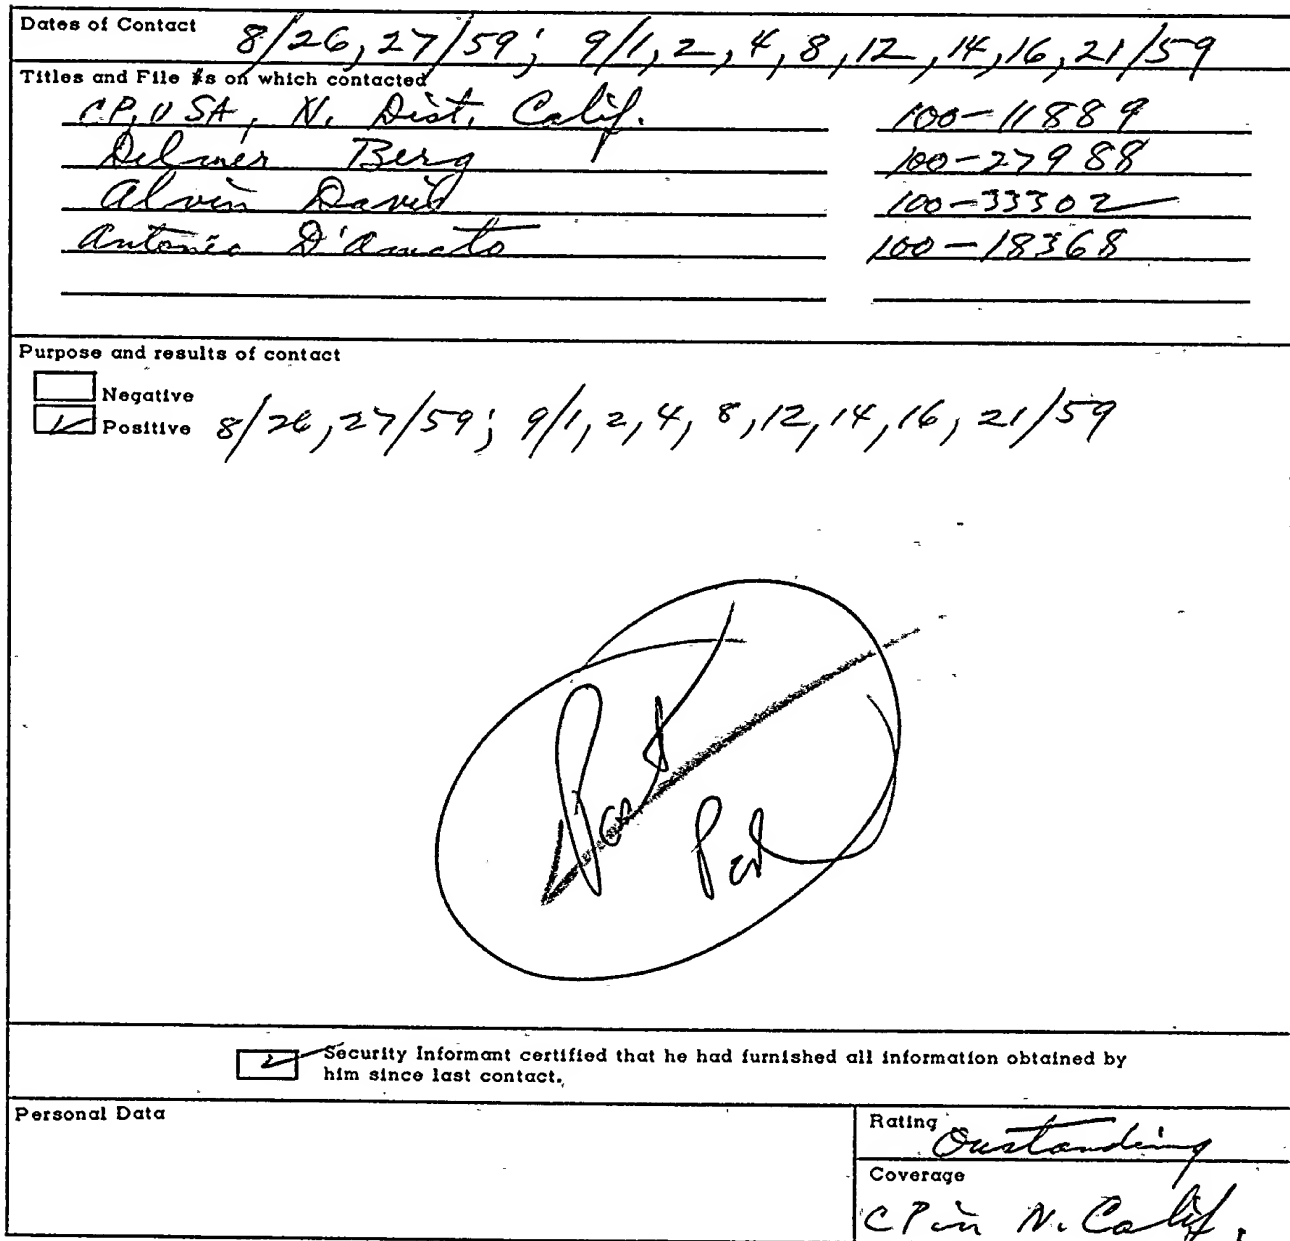 Dates of Contact 8/26, 27/59; 9/1, 2, 4, 8, 12, 14, 16, 21/59
Titles and File #s on which contacted
CP, USA, N. Dist. Calif. 100-11889
Delmer Berg 100-27988
Alvin David 100-33302
Antonio D'Amato 100-18368
Purpose and results of contact
Negative
Positive 8/26, 27/59; 9/1, 2, 4, 8, 12, 14, 16, 21/59
Security Informant certified that he had furnished all information obtained by
him since last contact.
Personal Data
Rating Oustanding
Coverage
CP in N. Calif.